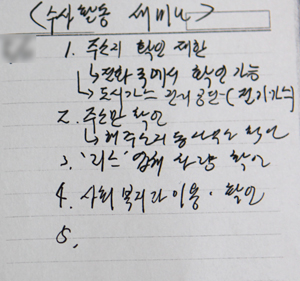 <수사 활동 세미나>
1. 주소지 확인 제한
↳ 전화 국에서 확인 가능
↳ 도시가스 관리공단-(전기가스)
2. 주소만 확인
↳ 해 주소지 등 확인
3. '리스' 업체 차량 확인
4. 사회복지과 이용·확인
5.